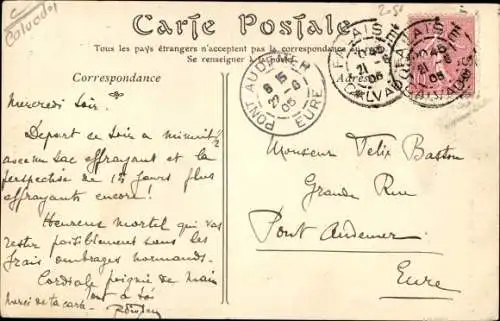 Calvados
2.50
Carte Postale
Tous les pays étrangers n'acceptent pas la correspondance
Se renseigner à la poste
Correspondance
Adresse
FALAISE
21 -6
06
CALVADOS
FALAISE
21 -6
06
CALVADOS
PONT-AUDEMER
8 15
22 -6
06
EURE
Mercredi soir.
Départ ce soir à minuit 1/2
avec un sac effrayant et la
perspective de 15 jours plus
effrayants encore !
Heureux mortel qui vas
rester paisiblement sous les
frais ombrages normands.
Cordiale poignée de main
Tout à toi
Merci de ta carte
Monsieur Felix Baston
Grande Rue
Pont Audemer
Eure